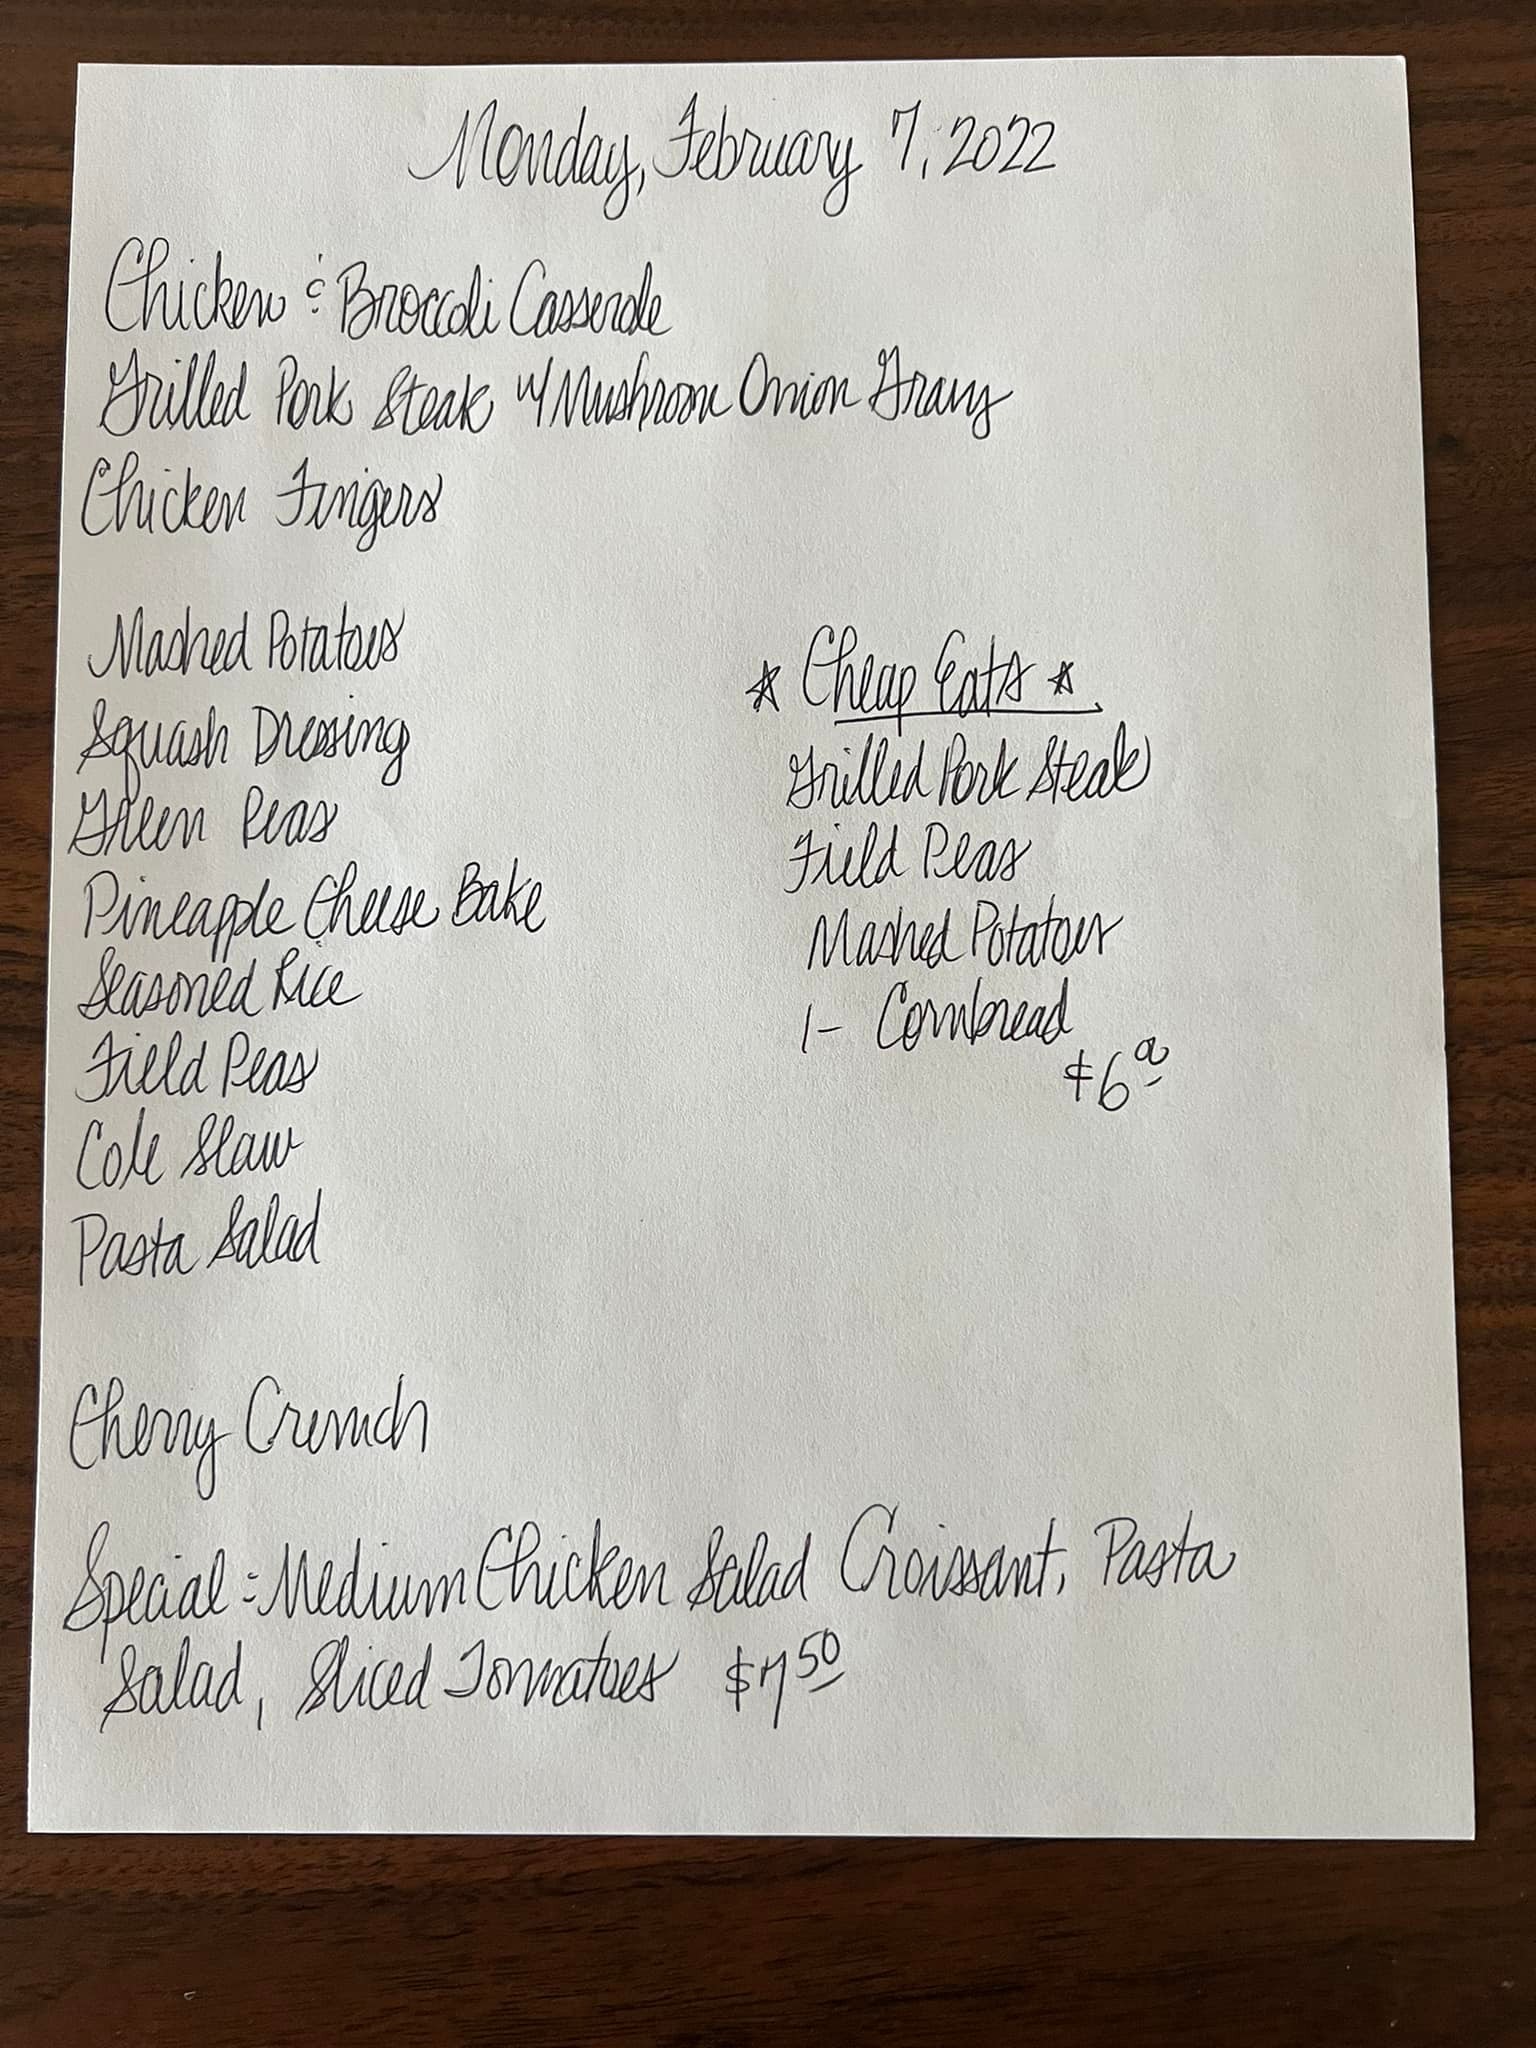 Monday, February 7, 2022
Chicken & Broccoli Casserole
Grilled Pork Steak w/ Mushroom Onion Gravy
Chicken Fingers
Mashed Potatoes
Squash Dressing
Green Peas
Pineapple Cheese Bake
Seasoned Rice
Field Peas
Cole Slaw
Pasta Salad
* Cheap Eats *
Grilled Pork Steak
Field Peas
Mashed Potatoes
1- Cornbread
$6.00
Cherry Crunch
Special: Medium Chicken Salad Croissant, Pasta
Salad, Sliced Tomatoes $7.50